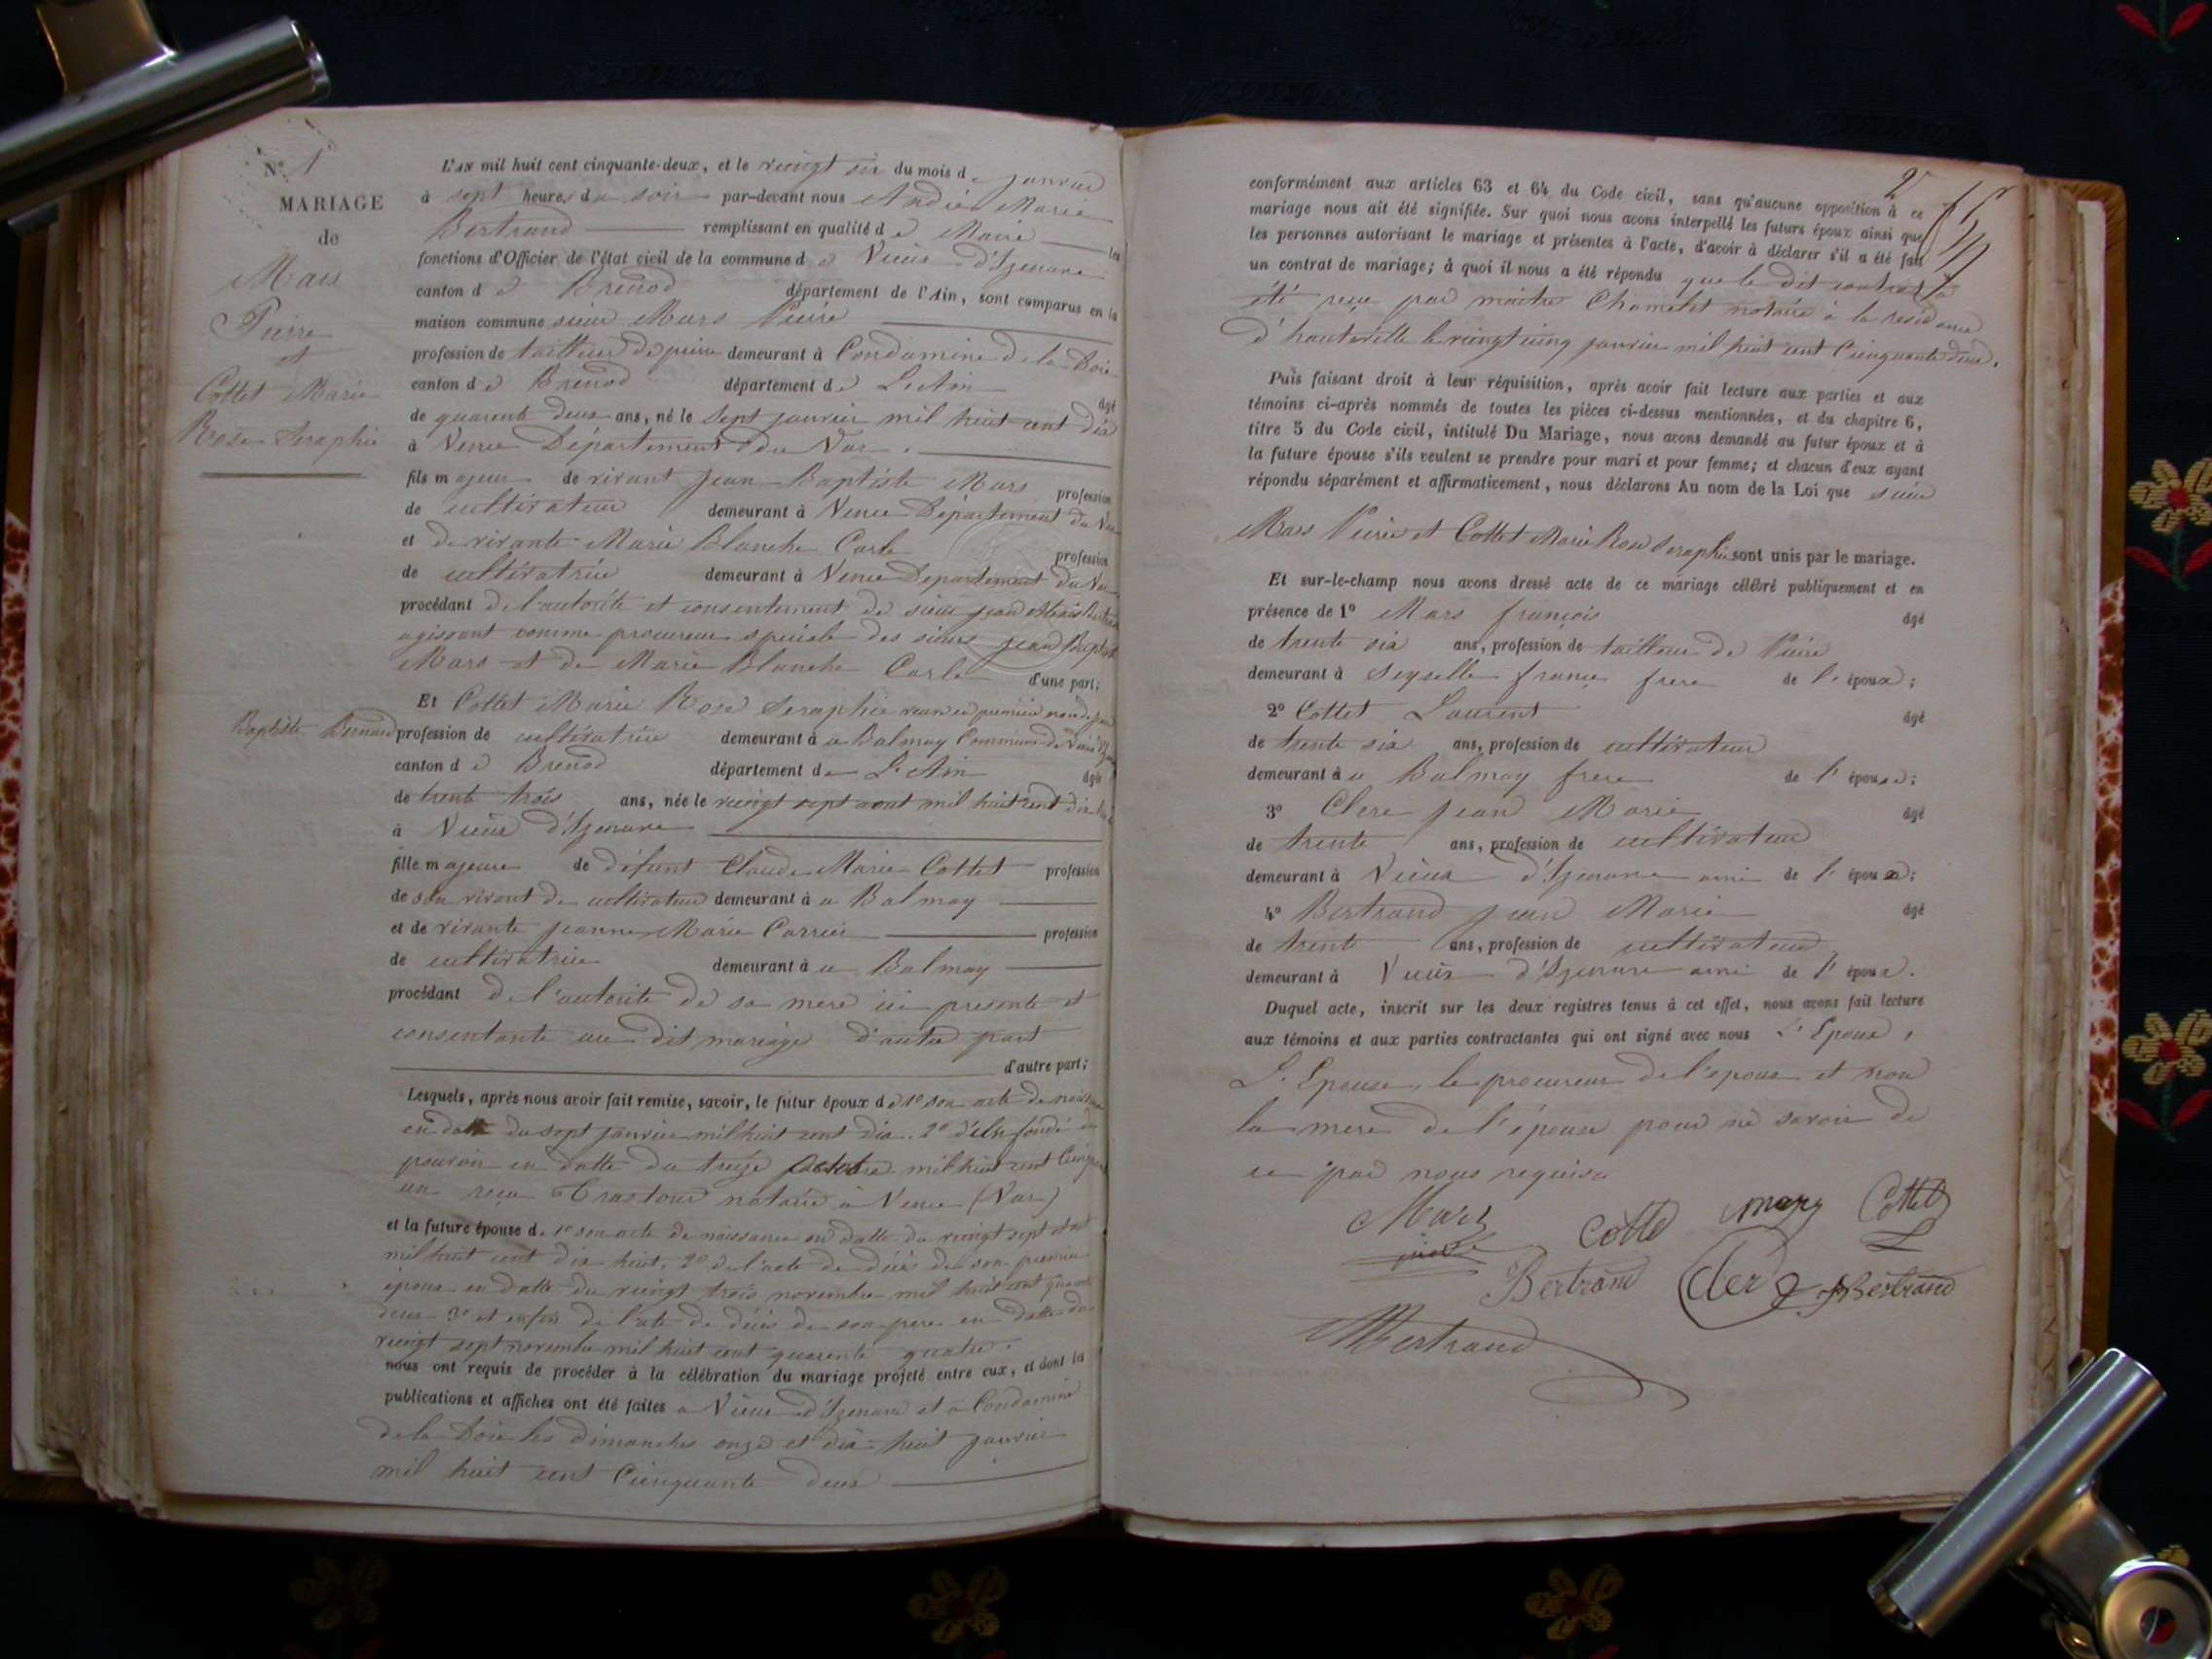 N° 1
MARIAGE
de
Mars
Pierre
et
Cottet Marie
Rose Seraphie
L'AN mil huit cent cinquante-deux, et le vingt six du mois de janvier
à sept heures du soir par-devant nous André Marie
Bertrand remplissant en qualité de Maire les
fonctions d'Officier de l'état civil de la commune de Vieux d'Izenave
canton de Brenod département de l'Ain, sont comparus en la
maison commune sieur Mars Pierre
profession de tailleur de pierre demeurant à Condamine de la Doie
canton de Brenod département de L'Ain âgé
de quarente deux ans, né le sept janvier mil huit cent dix
à Vence Département du Var.
fils majeur de vivant Jean Baptiste Mars profession
de cultivateur demeurant à Vence Département du Var
et de vivante Marie Blanche Carle profession
de cultivatrice demeurant à Vence Departement du Var
procédant de l'autorité et consentement de sieur Jean Bertrand
agissant comme procureur speciale des sieurs Jean Baptiste
Mars et de Marie Blanche Carle d'une part;
Et Cottet Marie Rose Seraphie veuve en premiere noce de Jean
Baptiste Bernard profession de cultivatrice demeurant à a Balmay Commune de Vieux
canton de Brenod département de L'Ain âgée
de trente trois ans, née le vingt sept aout mil huit cent dix huit
à Vieux d'Izenave
fille majeure de défunt Claude Marie Cottet profession
de son vivant de cultivateur demeurant à a Balmay
et de vivante Jeanne Marie Carrier profession
de cultivatrice demeurant à a Balmay
procédant de l'autorite de sa mere ici presente et
consentante au dit mariage d'autre part
d'autre part;
Lesquels, après nous avoir fait remise, savoir, le futur époux de 1° son acte de naissance
en date du sept janvier mil huit cent dix. 2° fondé de
pouvoir en datte du treize octobre mil huit cent cinquante
un reçu Trastour notaire à Vence (Var)
et la future épouse de 1° son acte de naissance en datte du vingt sept aout
mil huit cent dix huit, 2° de l'acte de décès de son premier
époux en datte du vingt trois novembre mil huit cent quarente
deux 3° et enfin de l'acte de décès de son pere en datte du
vingt sept novembre mil huit cent quarente quatre.
nous ont requis de procéder à la célébration du mariage projeté entre eux, et dont les
publications et affiches ont été faites a Vieux d'Izenave et a Condamine
de la Doie les dimanches onze et dix-huit janvier
mil huit cent cinquante deux
2
conformément aux articles 63 et 64 du Code civil, sans qu'aucune opposition à ce
mariage nous ait été signifiée. Sur quoi nous avons interpellé les futurs époux ainsi que
les personnes autorisant le mariage et présentes à l'acte, d'avoir à déclarer s'il a été fait
un contrat de mariage; à quoi il nous a été répondu que le dit contrat a
été reçu par maitre Chamelet notaire à la residence
d'hauteville le vingt cinq janvier mil huit cent cinquante deux.
Puis faisant droit à leur réquisition, après avoir fait lecture aux parties et aux
témoins ci-après nommés de toutes les pièces ci-dessus mentionnées, et du chapitre 6,
titre 5 du Code civil, intitulé Du Mariage, nous avons demandé au futur époux et à
la future épouse s'ils veulent se prendre pour mari et pour femme; et chacun d'eux ayant
répondu séparément et affirmativement, nous déclarons Au nom de la Loi que sieur
Mars Pierre et Cottet Marie Rose Seraphie sont unis par le mariage.
Et sur-le-champ nous avons dressé acte de ce mariage célébré publiquement et en
présence de 1° Mars françois âgé
de trente six ans, profession de tailleur de Pierre
demeurant à Seyselle france frere de l'époux;
2° Cottet Laurent âgé
de trente six ans, profession de cultivateur
demeurant à a Balmay frere de l'épouse;
3° Clerc Jean Marie âgé
de trente ans, profession de cultivateur
demeurant à Vieux d'Izenave ami de l'époux;
4° Bertrand Jean Marie âgé
de trente ans, profession de cultivateur
demeurant à Vieux d'Izenave ami de l'époux.
Duquel acte, inscrit sur les deux registres tenus à cet effet, nous avons fait lecture
aux témoins et aux parties contractantes qui ont signé avec nous L'Epoux,
L'Epouse, le procureur de l'epoux et non
la mere de l'épouse pour ne savoir de
ce par nous requise
Mars Cottet mars Cottet
Bertrand Clerc Bertrand
Bertrand